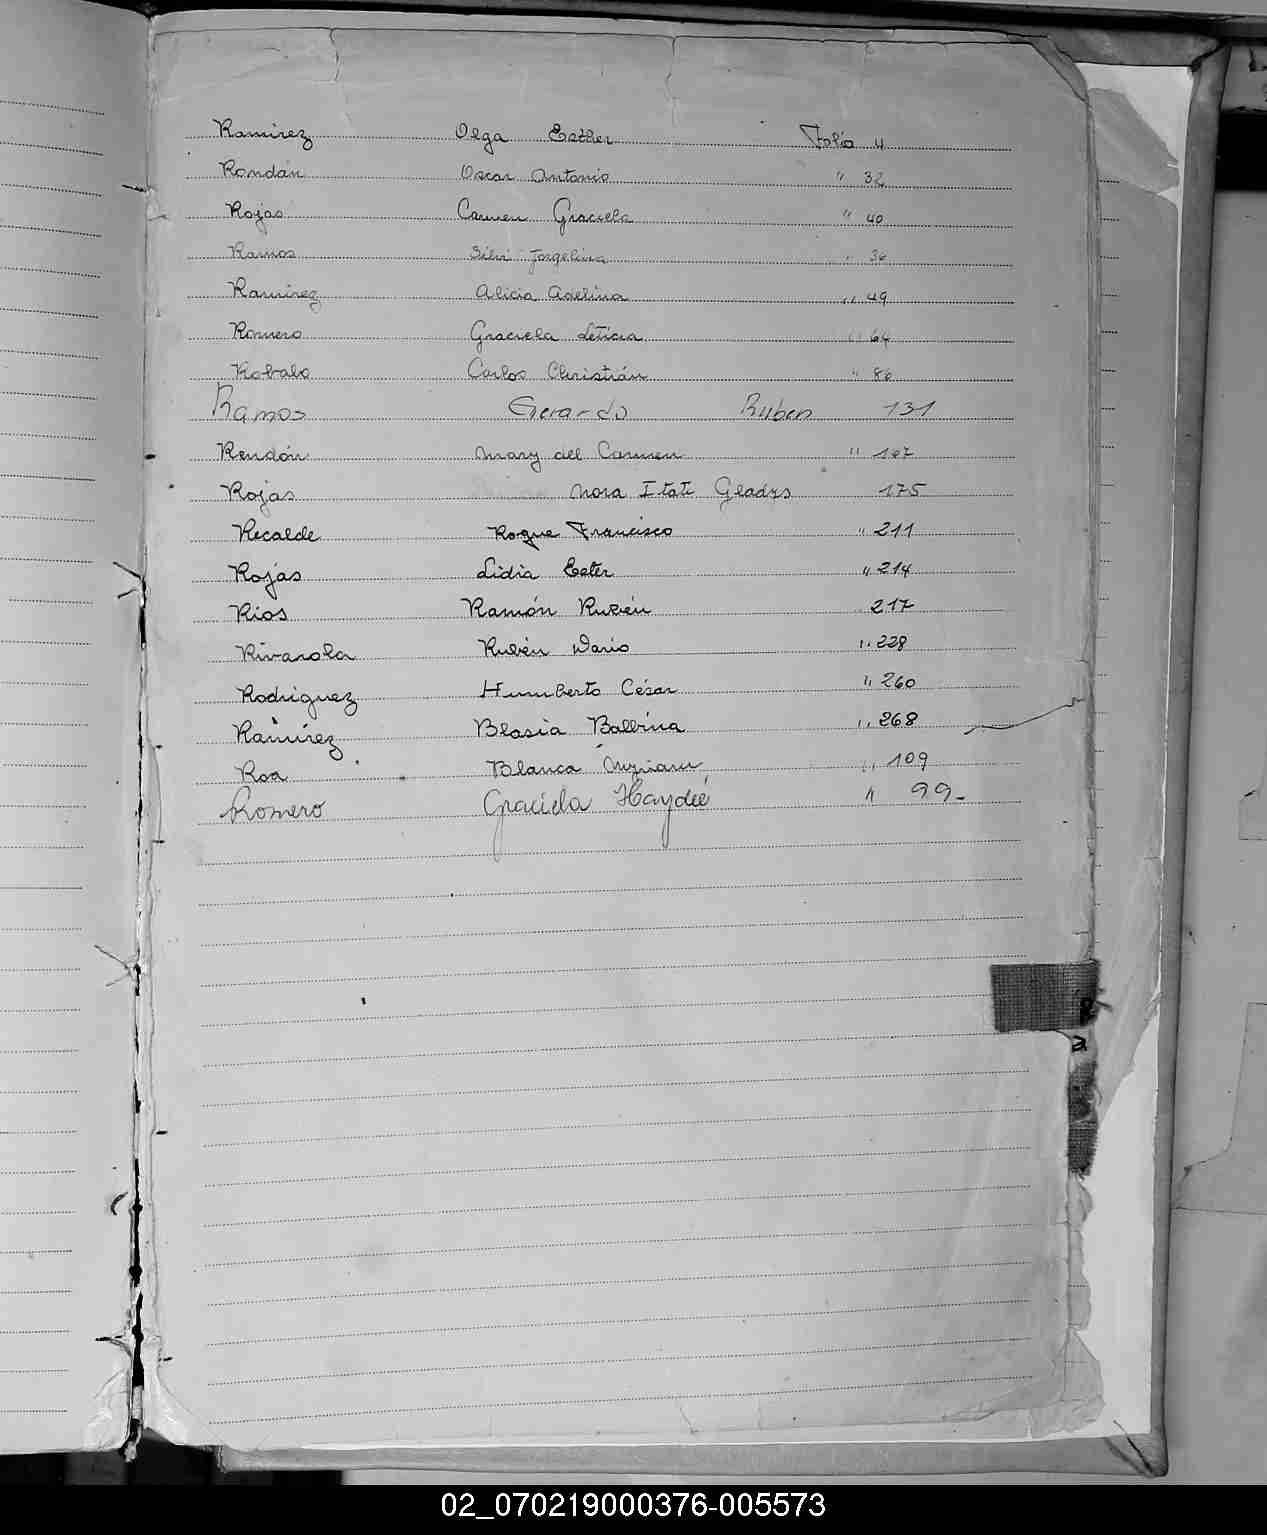 Ramirez Olga Esther Folio 4
Rondán Oscar Antonio " 32
Rojas Carmen Graciela " 40
Ramos Jorgelina " 36
Ramirez Alicia Adelina " 49
Romero Graciela Leticia " 64
Robalo Carlos Christián " 86
Ramos Gerardo Ruben 131
Rendón Mary del Carmen " 167
Rojas Nora Itati Gladys 175
Recalde Roque Francisco " 211
Rojas Lidia Ester " 214
Rios Ramón Rubén 217
Rivarola Rubén Dario " 228
Rodriguez Humberto César " 260
Ramírez Blasia Balbina " 268
Roa Blanca Myriam " 109
Romero Graciela Haydeé " 99-
02_070219000376-005573